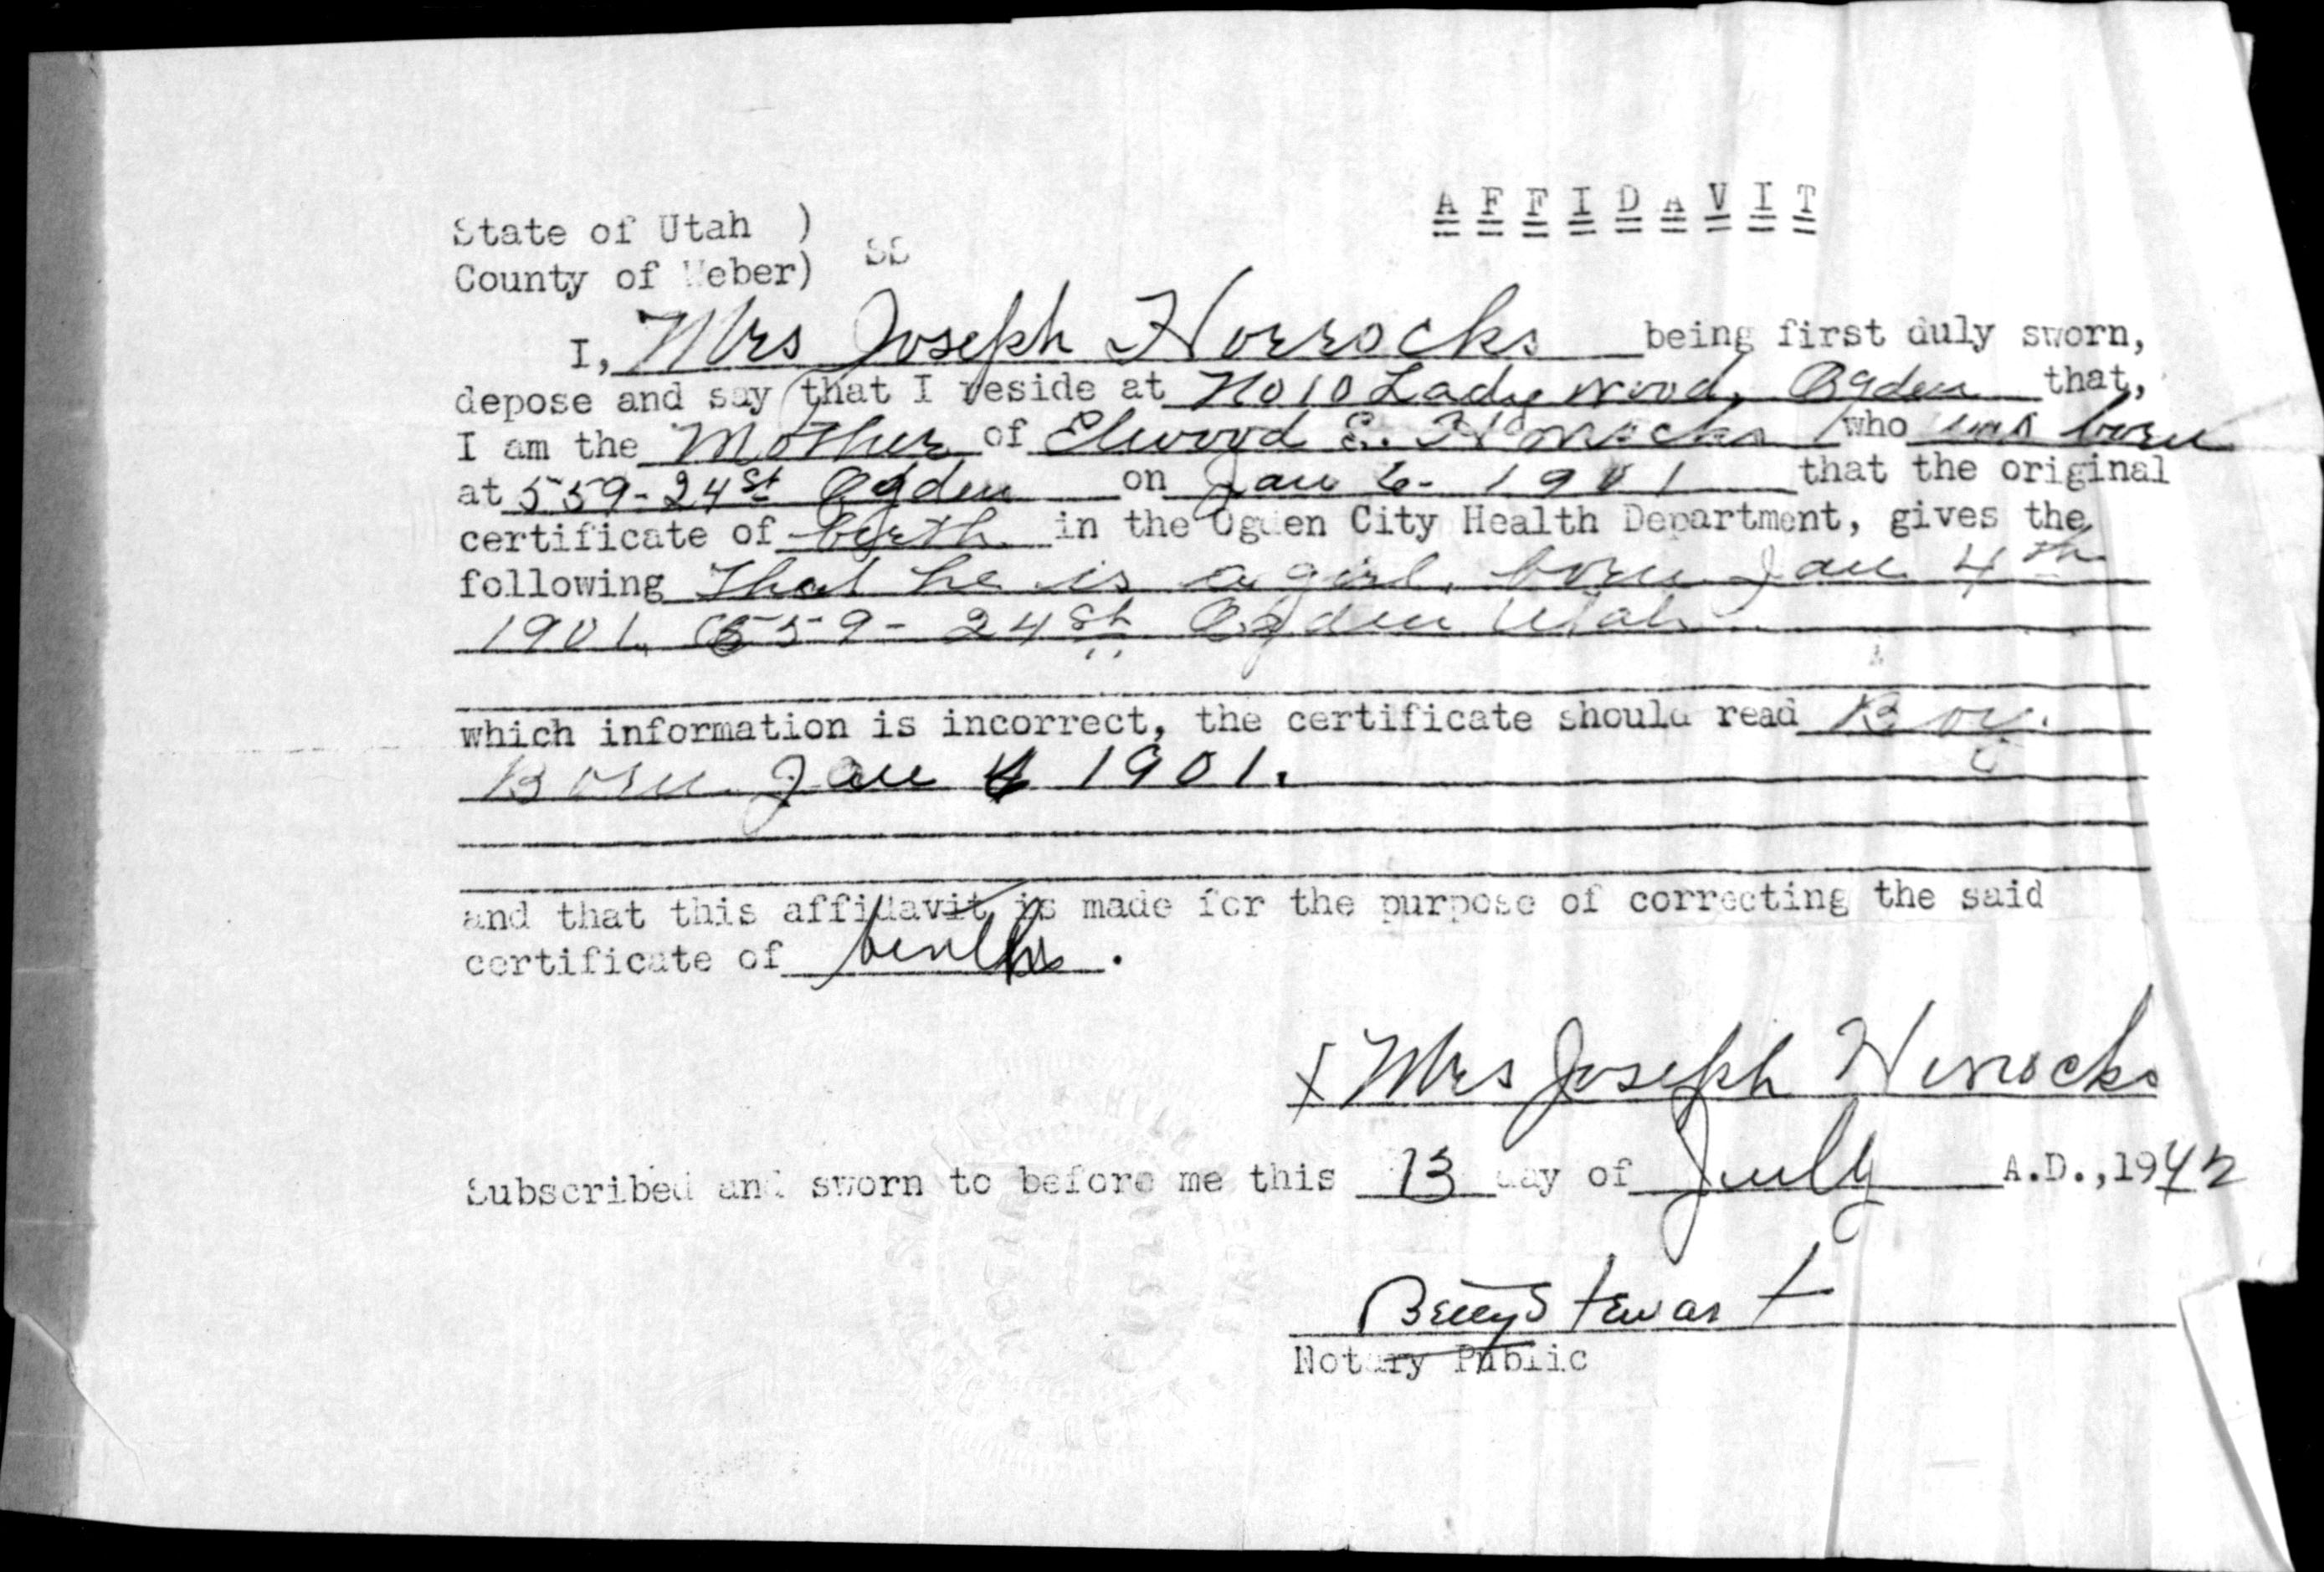 AFFIDAVIT
State of Utah )
SS
County of Weber)
I, Mrs Joseph Horrocks being first duly sworn,
depose and say that I reside at No 10 Ladywood, Ogden that,
I am the Mother of Elwood E. Horrocks who was born
at 559-24 St Ogden on Jan 6- 1901 that the original
certificate of birth in the Ogden City Health Department, gives the
following That he is a girl, born Jan 4th
1901, 559-24 St Ogden Utah
which information is incorrect, the certificate should read Boy.
Born Jan 1901.
and that this affidavit is made for the purpose of correcting the said
certificate of birth.
X Mrs Joseph Horrocks
Subscribed and sworn to before me this 13 day of July A.D.,1942
Betty Stewart
Notary Public